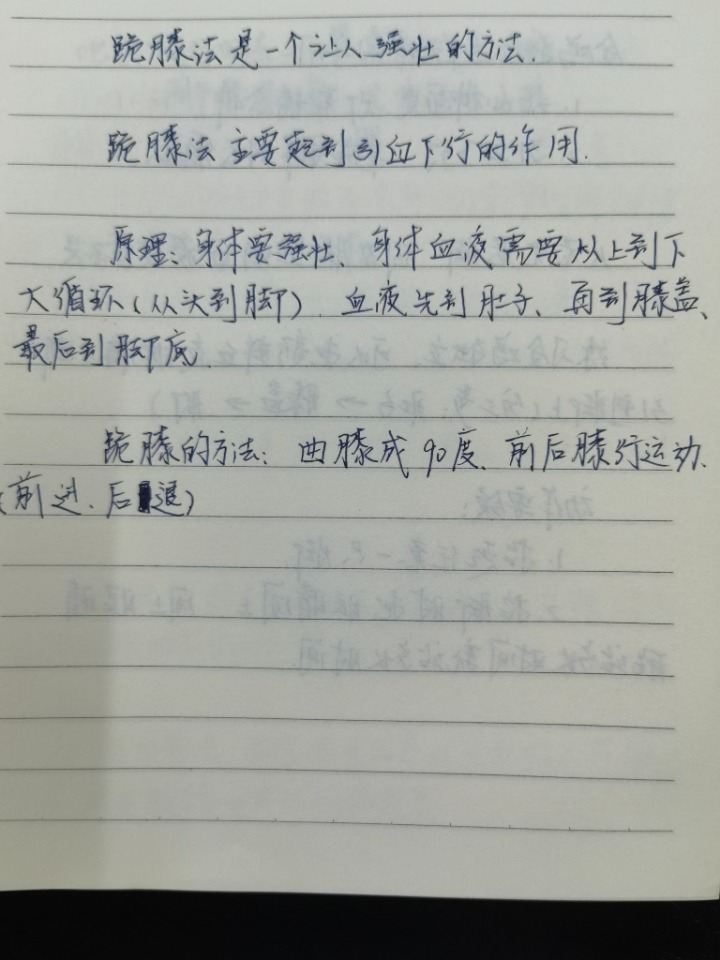 跪膝法是一个让人强壮的方法.
跪膝法主要起到引血下行的作用.
原理:身体要强壮、身体血液需要从上到下
大循环(从头到脚). 血液先到肚子、再到膝盖、
最后到脚底.
跪膝的方法: 曲膝成90度、前后膝行运动.
(前进、后退)